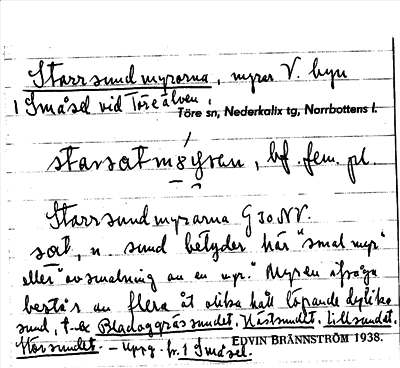 Starrsundmyrarna, myrar V. byn
1 Småsel vid Töreälven.
Töre sn, Nederkalix tg, Norrbottens l.
bf. fem. pl.
Starrsundmyrarna G 30 NV.
sat, n sund betyder här "smal myr"
eller "avsmalning av en myr." Myren ifråga
består av flera åt olika håll löpande dylika
sund, t. ex Bladoggrässundet, Hästsundet, Lillsundet,
Storsundet. – Uppg. fr. 1 Småsel.
EDVIN BRÄNNSTRÖM 1938.